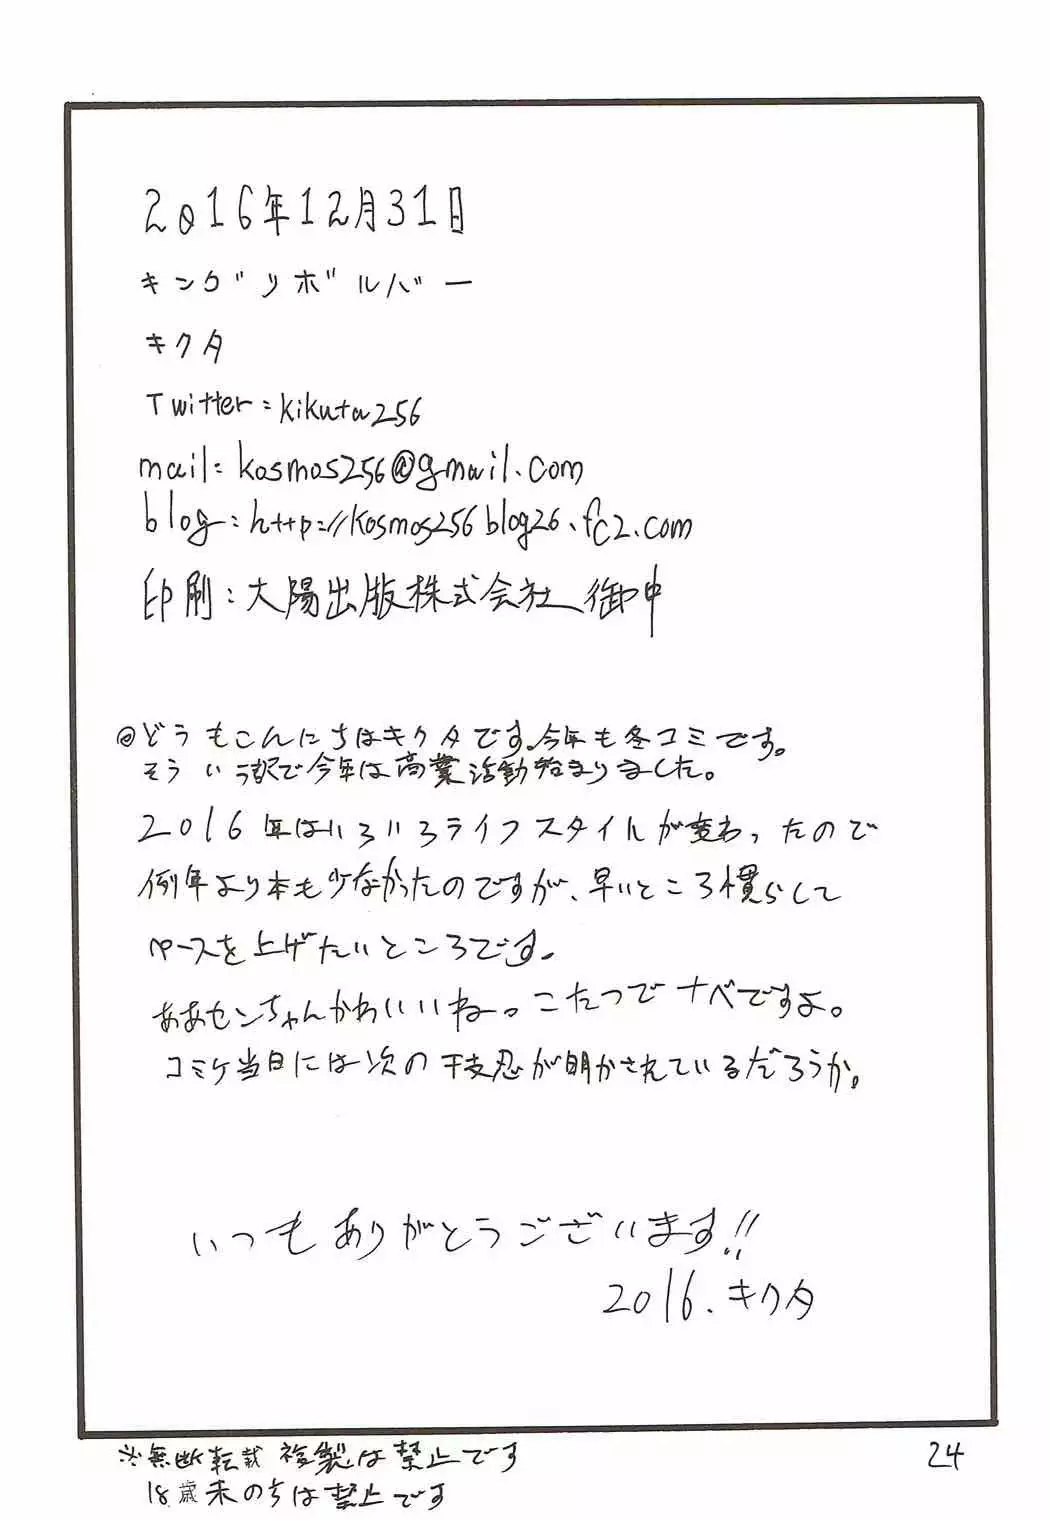 2016年12月31日
キングリボルバー
キクタ
Twitter:kikuta256
mail:kosmos256@gmail.com
blog:http://kosmos256blog26.fc2.com
印刷:大陽出版株式会社 御中
@どうもこんにちはキクタです。今年も冬コミです。
そういう訳で今年は商業活動始まりました。
2016年はいろいろライフスタイルが変わったので
例年より本も少なかったのですが、早いところ慣らして
ペースを上げたいところです。
ああセンちゃんかわいいね。こたつでナベですよ。
コミケ当日には次の干支忍が明かされているだろうか。
いつもありがとうございます!!
2016.キクタ
※無断転載 複製は禁止です
18歳未のちは禁止です
24